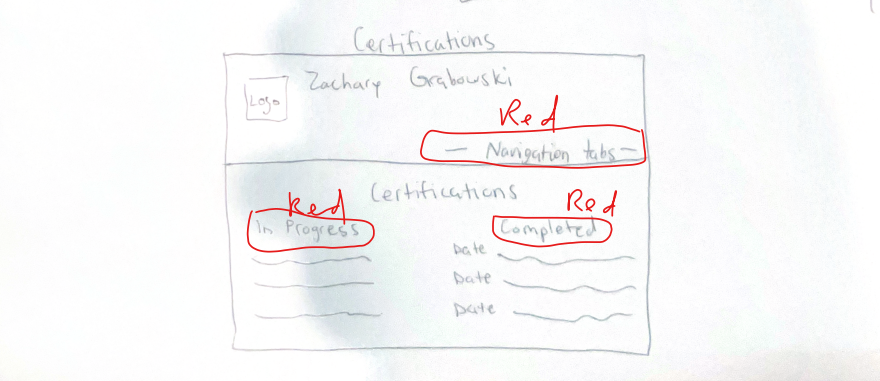 Certifications
Logo
Zachary Grabowski
Red
— Navigation tabs —
Certifications
Red
Red
In Progress
Completed
Date
Date
Date